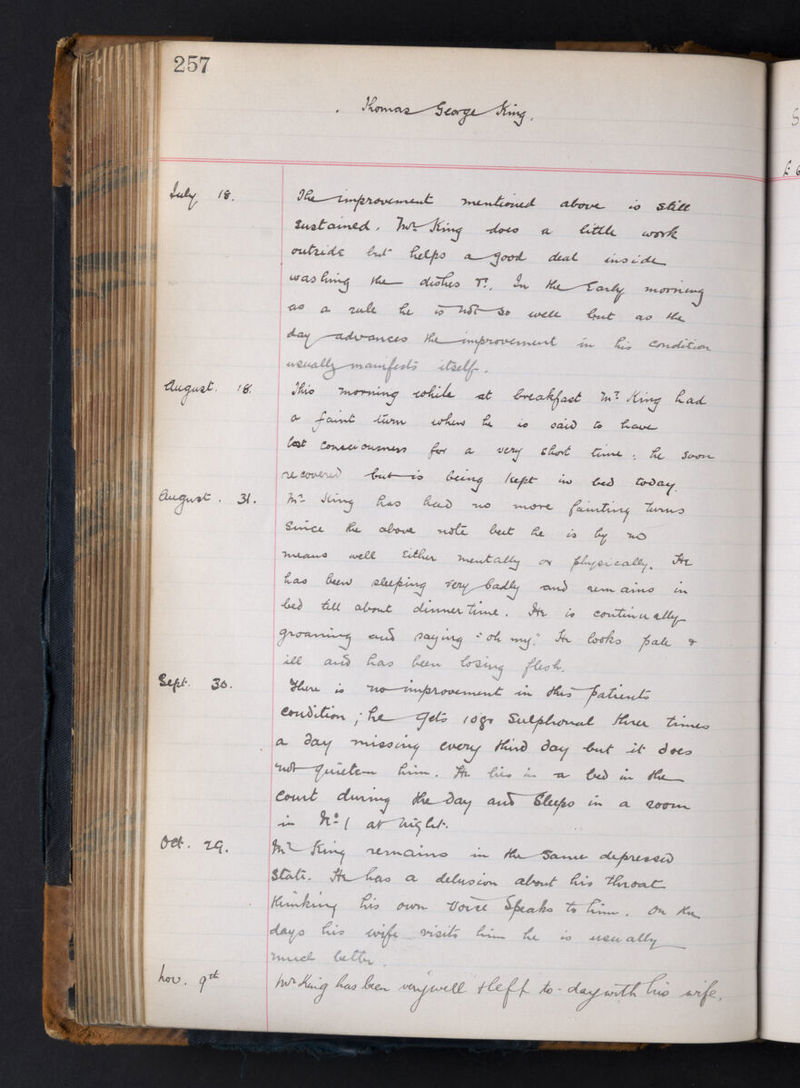 257
Thomas George King.
July 18. The improvement mentioned above is still
sustained. Mr King does a little work
outside but helps a good deal inside
washing the dishes &c. In the Early morning
as a rule he is not so well but as the
day advances the improvement in his condition
usually manifests itself.
August. 18. This morning while at breakfast Mr King had
a faint turn when he is said to have
lost consciousness for a very short time: he soon
recovered but is being kept in bed today.
August. 31. Mr King has had no more fainting turns
Since the above note but he is by no
means well Either mentally or physically. He
has been sleeping very badly and remains in
bed till about dinner time. He is continually
groaning and saying "oh my." He looks pale &
ill and has been losing flesh.
Sept. 30. There is no improvement in this patients
condition; he gets 10gr Sulphonal three times
a day missing every third day but it does
not quieten him. He lies in a bed in the
Court during the day and Sleeps in a room
in No 1 at night.
Oct. 29. Mr King remains in the same depressed
State. He has a delusion about his throat
thinking his own voice Speaks to him. On the
days his wife visits him he is usually
much better.
Nov. 9th Mr King has been very well & left to-day with his wife.